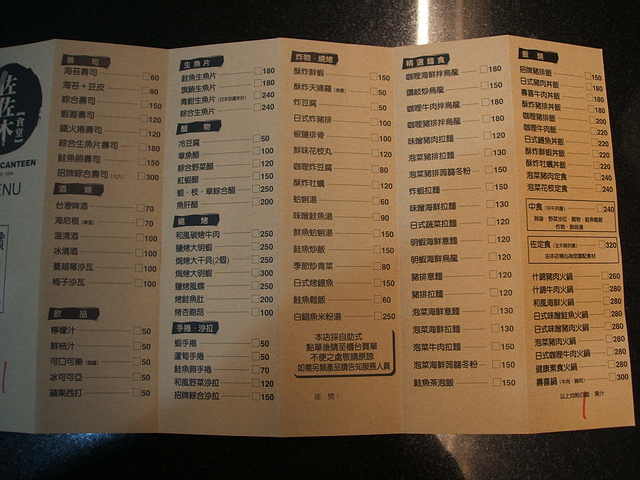 佐佐木
食堂
CANTEEN
ENU
壽司
海苔壽司 60
海苔+豆皮 80
綜合壽司 150
蝦握壽司 120
鐵火捲壽司 120
綜合生魚片壽司 180
鮭魚卵壽司 150
招牌綜合壽司 300
酒類
台灣啤酒 70
海尼根 70
溫清酒 100
冰清酒 100
蔓越莓沙瓦 100
梅子沙瓦 100
飲品
檸檬汁 50
鮮桔汁 50
可口可樂 50
冰可可亞 50
蘋果西打 50
生魚片
鮭魚生魚片 180
旗魚生魚片 180
青甘生魚片 240
綜合生魚片 240
醋物
冷豆腐 50
章魚醋 100
綜合野菜醋 120
紅蝦醋 150
蝦·軟·章綜合醋 250
魚肝醋 200
燒烤
和風碳烤牛肉 250
鹽烤大明蝦 250
焗烤大干貝(2個) 250
焗烤大明蝦 300
鹽烤風螺 250
烤鮭魚肚 200
烤杏鮑菇 100
手捲、沙拉
蝦手捲 50
蘆筍手捲 50
鮭魚卵手捲 70
和風野菜沙拉 120
招牌綜合沙拉 150
炸物·燒烤
酥炸鮮蝦 150
酥炸天婦羅 150
炸豆腐 50
日式炸豬排 100
椒鹽排骨 100
鮮味花枝丸 100
咖哩炸豆腐 80
酥炸牡蠣 120
蛤蜊湯 60
味噌鮭魚湯 90
鮮魚蛤蜊湯 150
鮭魚炒飯 150
季節炒青菜 80
日式烤鯖魚 150
鮭魚鬆飯 60
白鯧魚米粉湯 250
本店採自助式
點單後請至櫃台買單
不便之處敬請原諒
如需另類產品請告知服務人員
座號:
精選麵食
咖哩海鮮拌烏龍 180
讚岐炒烏龍 150
咖哩牛肉拌烏龍 180
咖哩豬排拌烏龍 180
味噌豬肉拉麵 120
泡菜豬排拉麵 130
泡菜豬排蒟蒻冬粉 150
炸蝦拉麵 150
味噌海鮮拉麵 130
日式蔬菜拉麵 120
明蝦海鮮意麵 200
明蝦海鮮烏龍 200
豬排意麵 120
豬排拉麵 120
泡菜海鮮意麵 150
泡菜海鮮拉麵 150
泡菜牛肉拉麵 150
泡菜海鮮蒟蒻冬粉 150
鮭魚茶泡飯 150
飯類
招牌豬排飯 150
日式豬肉丼飯 150
壽喜牛肉丼飯 180
酥炸豬排丼飯 180
咖哩豬排飯 200
咖哩牛肉飯 220
日式鯖魚丼飯 220
酥炸鮮蝦丼飯 220
酥炸牡蠣丼飯 220
泡菜豬肉定食 240
泡菜花枝定食 240
中食 240
佐定食 320
由本店精心為您調配素材
什錦豬肉火鍋 260
什錦牛肉火鍋 280
和風海鮮火鍋 280
日式味噌鮭魚火鍋 280
日式味噌豬肉火鍋 280
泡菜豬肉火鍋 280
日式咖哩牛肉火鍋 280
健康素食火鍋 280
壽喜鍋 300